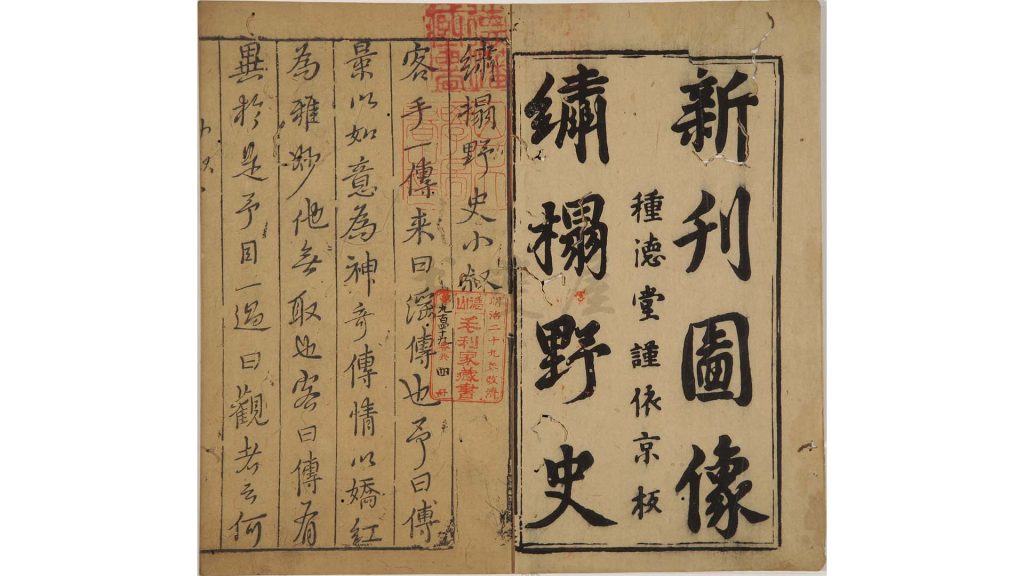 新刊圖像
種德堂謹依京板
繡榻野史
繡榻野史小敘
客手一傳来曰淫傳也予曰傳
量以如意為神奇傳情以嬌紅
為雅妙他無取也客曰傳有
異於是予目一過曰觀者云何
明治二十九年改濟
德山
毛利家藏書
九百四十九
四
冊